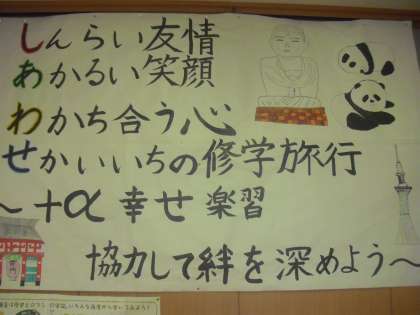 しんらい友情
あかるい笑顔
わかち合う心
せかいいちの修学旅行
～＋α 幸せ 楽習
協力して絆を深めよう～